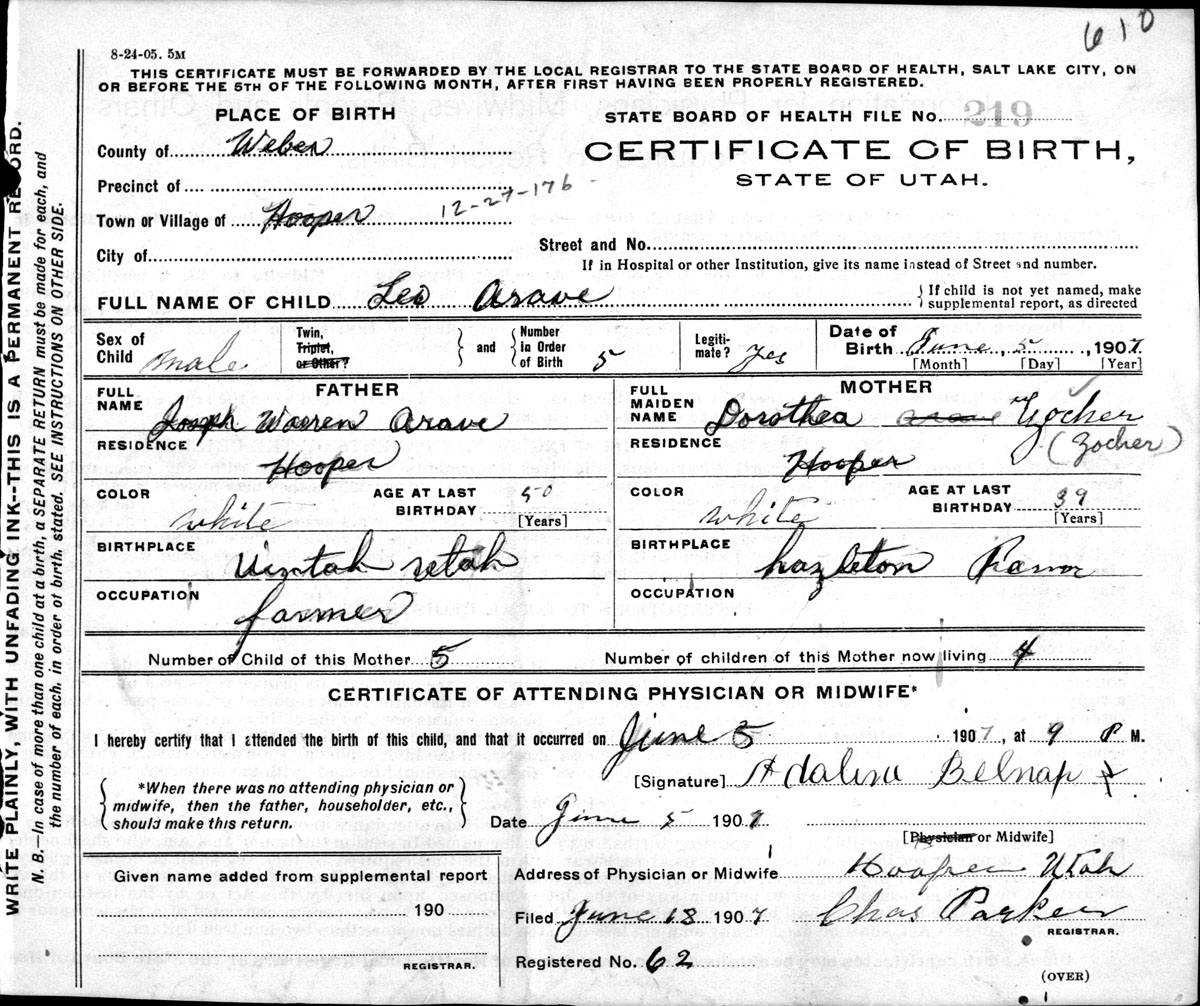 610
8-24-05. 5M
THIS CERTIFICATE MUST BE FORWARDED BY THE LOCAL REGISTRAR TO THE STATE BOARD OF HEALTH, SALT LAKE CITY, ON
OR BEFORE THE 5TH OF THE FOLLOWING MONTH, AFTER FIRST HAVING BEEN PROPERLY REGISTERED.
WRITE PLAINLY, WITH UNFADING INK--THIS IS A PERMANENT RECORD.
N. B.—In case of more than one child at a birth, a SEPARATE RETURN must be made for each, and
the number of each, in order of birth, stated. SEE INSTRUCTIONS ON OTHER SIDE.
PLACE OF BIRTH
STATE BOARD OF HEALTH FILE No. 219
County of Weber
CERTIFICATE OF BIRTH,
STATE OF UTAH.
Precinct of
12-27-176
Town or Village of Hooper
City of
Street and No.
If in Hospital or other Institution, give its name instead of Street and number.
FULL NAME OF CHILD Leo Arave
If child is not yet named, make
supplemental report, as directed
Sex of Child male
Twin, Triplet, or Other?
and
Number in Order of Birth 5
Legiti-mate? Yes
Date of Birth June 5, 1907
[Month] [Day] [Year]
FATHER
MOTHER
FULL NAME Joseph Warren Arave
FULL MAIDEN NAME Dorothea Arave Zocher
(Zocher)
RESIDENCE Hooper
RESIDENCE Hooper
COLOR white
AGE AT LAST BIRTHDAY 50 [Years]
COLOR white
AGE AT LAST BIRTHDAY 39 [Years]
BIRTHPLACE Uintah utah
BIRTHPLACE hazleton
OCCUPATION farmer
OCCUPATION
Number of Child of this Mother 5
Number of children of this Mother now living 4
CERTIFICATE OF ATTENDING PHYSICIAN OR MIDWIFE*
I hereby certify that I attended the birth of this child, and that it occurred on June 5 1907, at 9 P M.
[Signature] Adalina Belnap
*When there was no attending physician or
midwife, then the father, householder, etc.,
should make this return.
Date June 5 1907
[Physician or Midwife]
Given name added from supplemental report
190
REGISTRAR.
Address of Physician or Midwife Hooper Utah
Filed June 18 1907 Chas Parker
REGISTRAR.
Registered No. 62
(OVER)